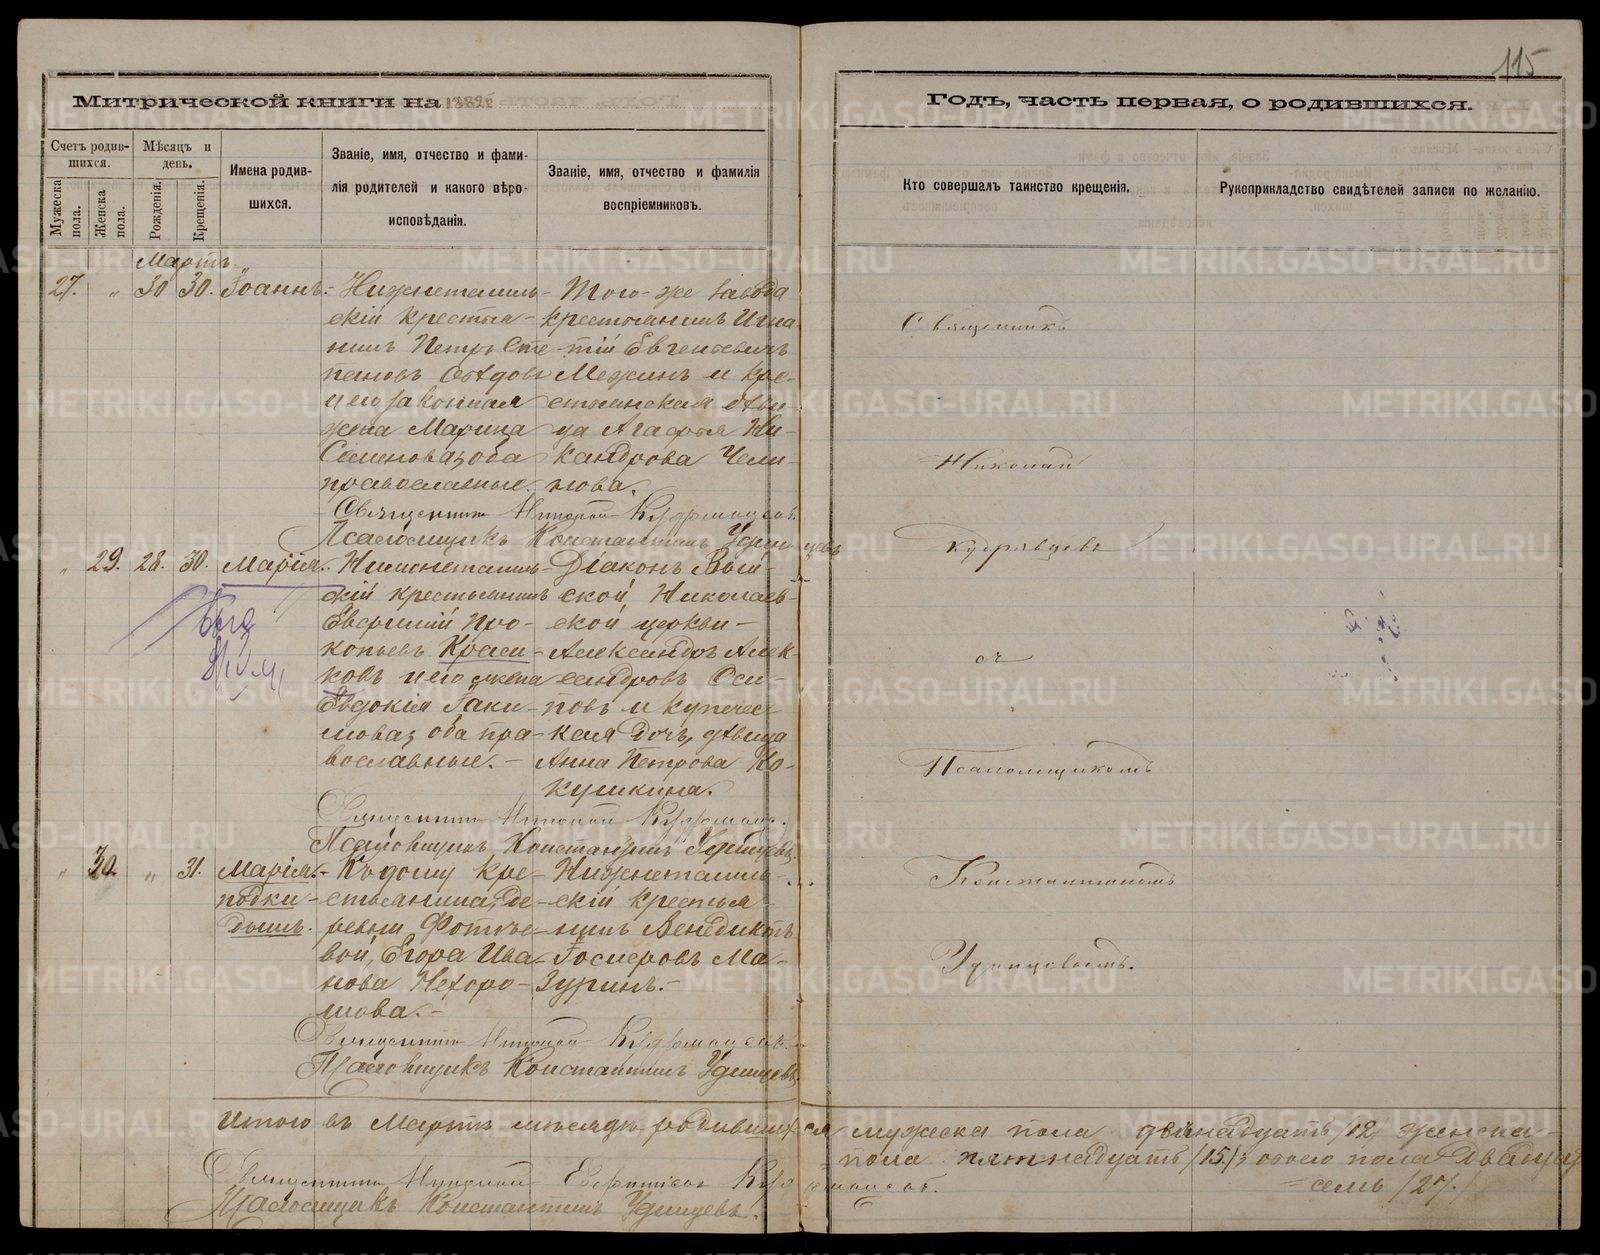 115
Митрической книги на 1882
Годъ, часть первая, о родившихся.
Счетъ родив-
шихся.
Мужеска пола.
Женска пола.
Мѣсяцъ и
день.
Рожденія.
Крещенія.
Имена родив-
шихся.
Званіе, имя, отчество и фами-
лія родителей и какого вѣро-
исповѣданія.
Званіе, имя, отчество и фамилія
воспріемниковъ.
Кто совершалъ таинство крещенія.
Рукоприкладство свидѣтелей записи по желанію.
Мартъ
27. „ 30 30. Іоаннъ.
Нижнетагиль-
скій крестья-
нинъ Петръ Сте
пановъ
и его законная
жена Марина
Семенова, оба
православные.
Того-же завода
крестьянинъ Игна-
тій Евгеньевичъ
и кре-
стьянская дѣви-
ца Агафья Ни-
кандрова
Священникъ Николай Кудрявцевъ.
Псаломщикъ Константинъ
„ 29. 28. 30. Марія.
Нижнетагиль-
скій крестьянинъ
Про-
копьевъ Краси-
ковъ и его жена
Евдокія Іаки-
мова, оба пра-
вославные.-
Діаконъ Вый-
ской Николаев-
ской церкви-
Александръ Алек-
сандровъ Оси-
повъ и купечес-
кая дочь, дѣвица
Анна Петрова
Священникъ Николай Кудрявцевъ.
Псаломщикъ Константинъ
„ 30. „ 31. Марія.
подки-
дышъ.
Къ дому кре-
стьянина, де-
ревни
вой, Егора Ива-
нова Нехоро-
шова.-
Нижнетагиль-
скій крестья-
нинъ Венедиктъ
Ма-
зуринъ.-
Священникъ Николай Кудрявцевъ.
Псаломщикъ Константинъ
Священникъ
Николай
Кудрявцевъ
съ
Псаломщикомъ
Константиномъ
Итого въ Мартѣ мѣсяцѣ родившихся мужеска пола двѣнадцать /12/ женска-
пола пятнадцать /15/, обоего пола двадца
семь /27./
Священникъ Николай Кудрявцевъ.
Псаломщикъ Константинъ
METRIKI.GASO-URAL.RU